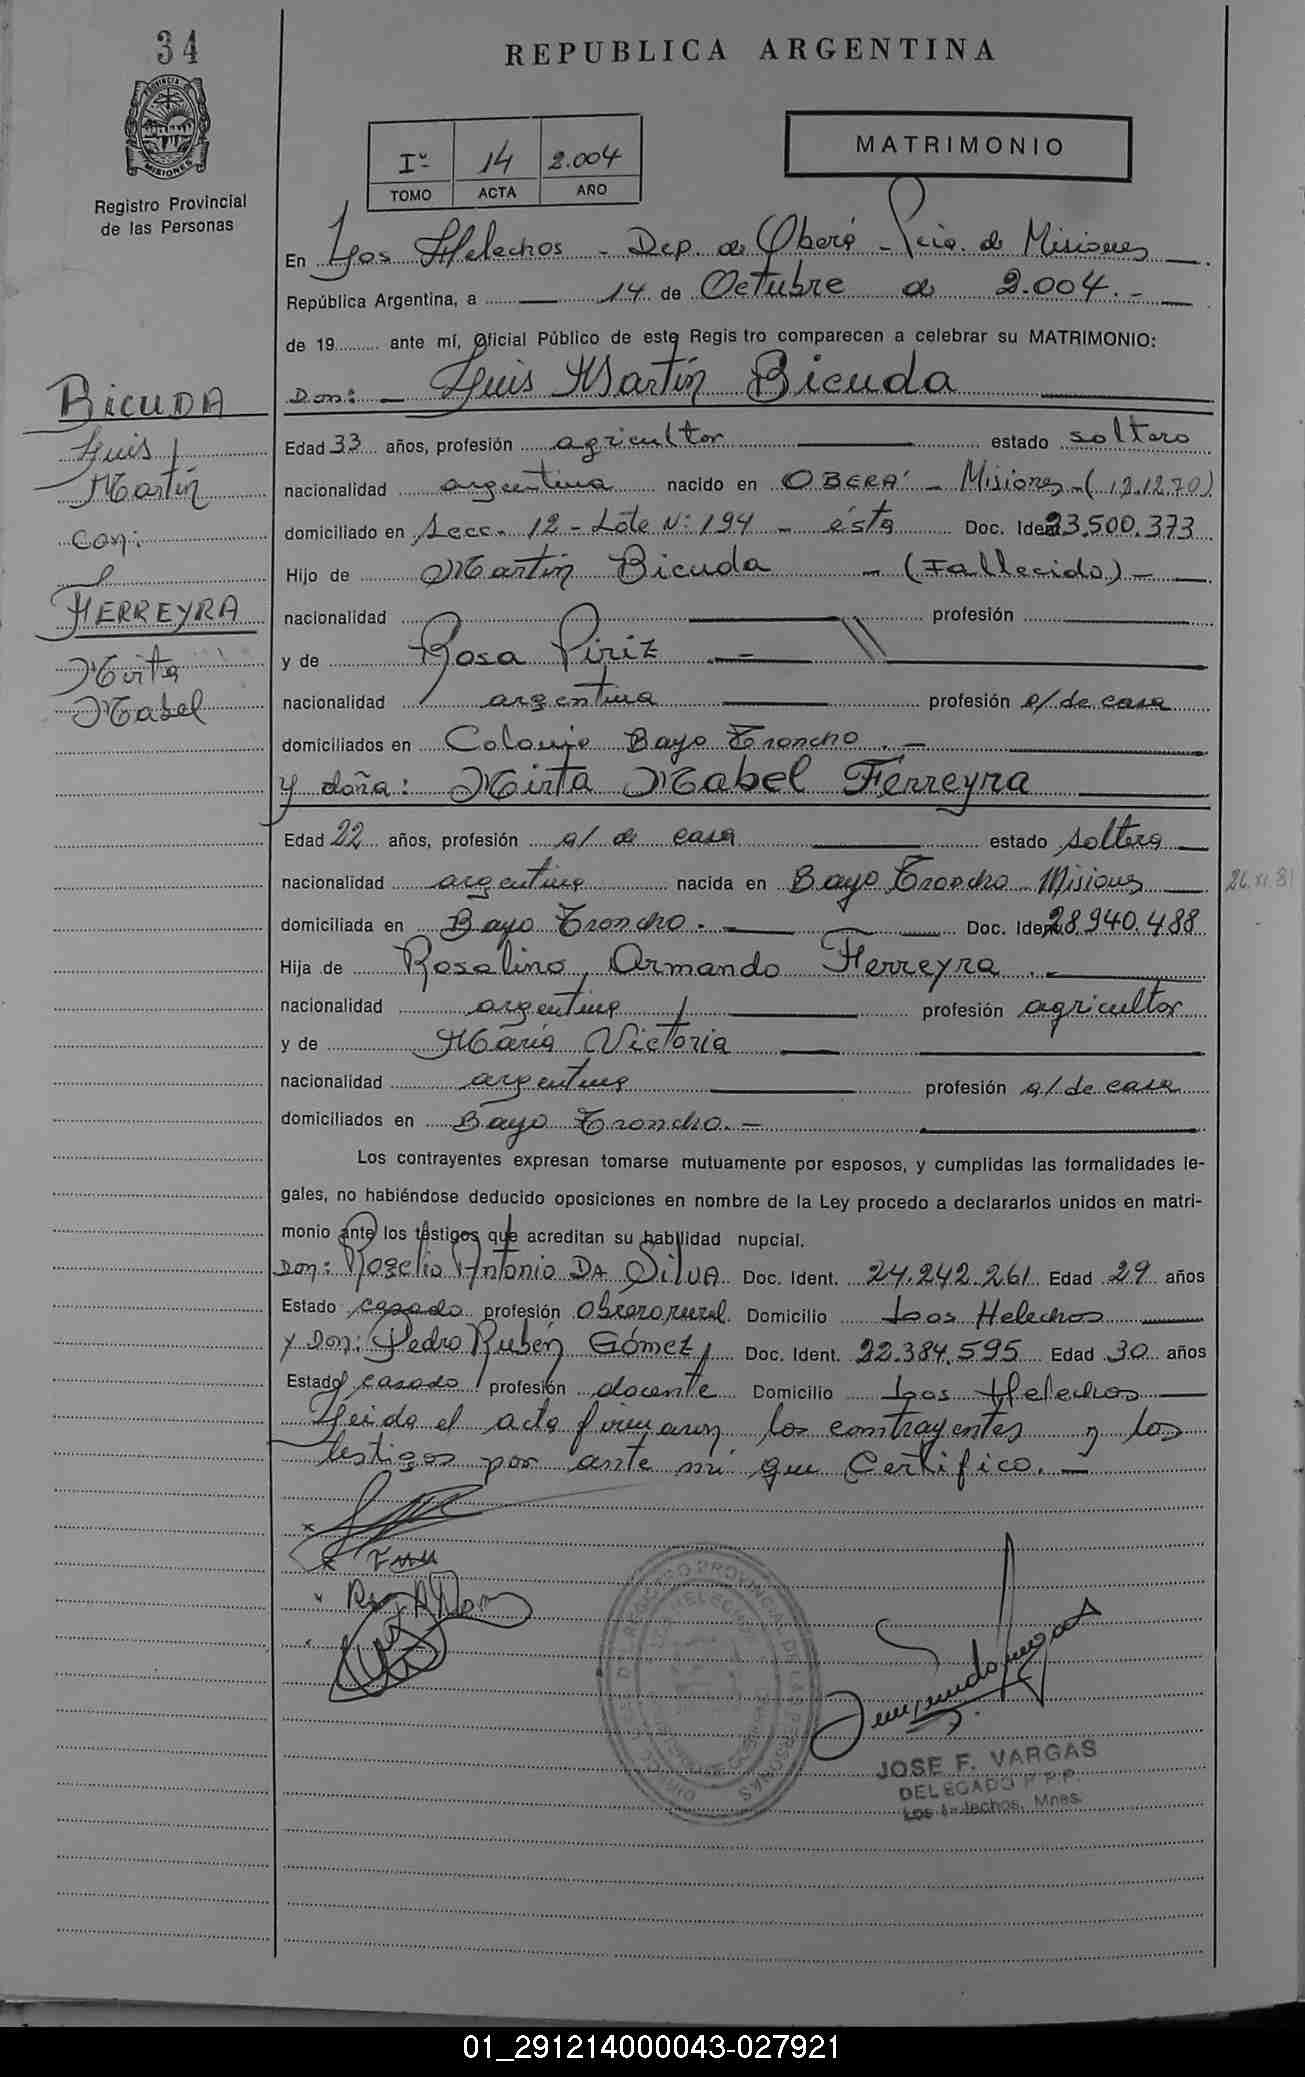 34
REPUBLICA ARGENTINA
PROVINCIA DE
MISIONES
Registro Provincial
de las Personas
Iº 14 2.004
TOMO ACTA AÑO
MATRIMONIO
En Los Helechos - Dep. de Oberá - Pcia. de Misiones
República Argentina, a 14 de Octubre de 2.004.-
de 19 ante mí, Oficial Público de este Registro comparecen a celebrar su MATRIMONIO:
Don: Luis Martín Bicuda
BICUDA
Luis
Martín
con:
FERREYRA
Mirta
Mabel
Edad 33 años, profesión agricultor estado soltero
nacionalidad argentina nacido en OBERA' - Misiones - (12.12.70)
domiciliado en Secc. 12 - Lote Nº 194 - ésta Doc. Iden 23.500.373
Hijo de Martín Bicuda - (Fallecido) -
nacionalidad profesión
y de Rosa Piriz -
nacionalidad argentina profesión a/ de casa
domiciliados en Colonia Bayo Troncho . -
y doña: Mirta Mabel Ferreyra
Edad 22 años, profesión a/ de casa estado soltera
nacionalidad argentina nacida en Bayo Troncho - Misiones
26.XI.81
domiciliada en Bayo Troncho. - Doc. Iden 28.940.488
Hija de Rosalino Armando Ferreyra . -
nacionalidad argentina profesión agricultor
y de María Victoria
nacionalidad argentina profesión a/ de casa
domiciliados en Bayo Troncho. -
Los contrayentes expresan tomarse mutuamente por esposos, y cumplidas las formalidades le-
gales, no habiéndose deducido oposiciones en nombre de la Ley procedo a declararlos unidos en matri-
monio ante los testigos que acreditan su habilidad nupcial.
Don: Rogelio Antonio DA SILVA Doc. Ident. 24.242.261 Edad 29 años
Estado casado profesión obrero rural Domicilio Los Helechos
y Don: Pedro Rubén Gómez Doc. Ident. 22.384.595 Edad 30 años
Estado casado profesión docente Domicilio Los Helechos
Leida el acta firmaron los contrayentes y los
testigos por ante mí que Certifico. -
JOSE F. VARGAS
DELEGADO R.P.P.
Los Helechos, Mnes.
01_291214000043-027921